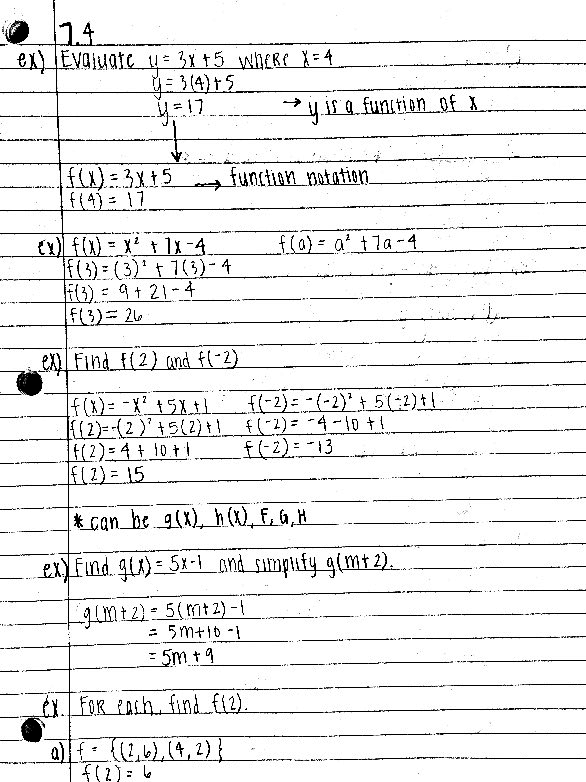 7.4
ex) Evaluate y = 3x + 5 where x = 4
y = 3(4) + 5
y = 17 → y is a function of x
f(x) = 3x + 5 → function notation
f(4) = 17
ex) f(x) = x² + 7x - 4 f(a) = a² + 7a - 4
f(3) = (3)² + 7(3) - 4
f(3) = 9 + 21 - 4
f(3) = 26
ex) Find f(2) and f(-2)
f(x) = -x² + 5x + 1 f(-2) = -(-2)² + 5(-2) + 1
f(2) = -(2)² + 5(2) + 1 f(-2) = -4 - 10 + 1
f(2) = 4 + 10 + 1 f(-2) = -13
f(2) = 15
* can be g(x), h(x), F, G, H
ex) Find g(x) = 5x - 1 and simplify g(m + 2).
g(m + 2) = 5(m + 2) - 1
= 5m + 10 - 1
= 5m + 9
ex. For each, find f(2).
a) f = {(2,6), (4,2)}
f(2) = 6